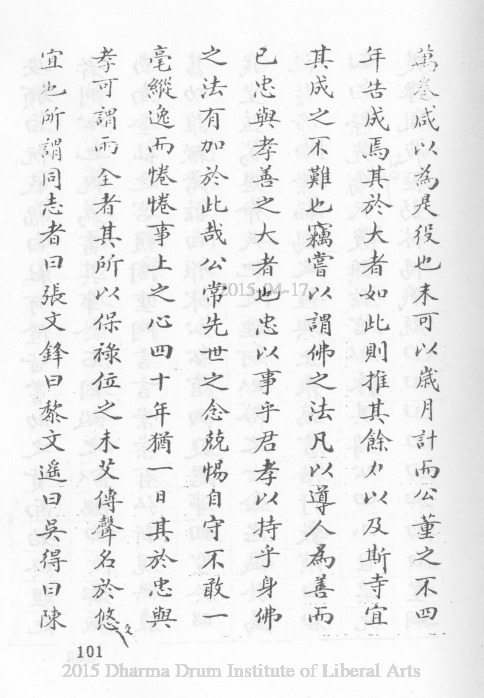 萬卷咸以為是役也未可以歲月計而公董之不四
年告成焉其於大者如此則推其餘力以及斯寺宜
其成之不難也竊嘗以謂佛之法凡以導人為善而
已忠與孝善之大者也忠以事乎君孝以持乎身佛
之法有加於此哉公常先世之念兢惕自守不敢一
毫縱逸而惓惓事上之心四十年猶一日其於忠與
孝可謂兩全者其所以保祿位之未艾傳聲名於悠
宜也所謂同志者曰張文鋒曰黎文遥曰吳得曰陳
2015-04-17
101
2015 Dharma Drum Institute of Liberal Arts